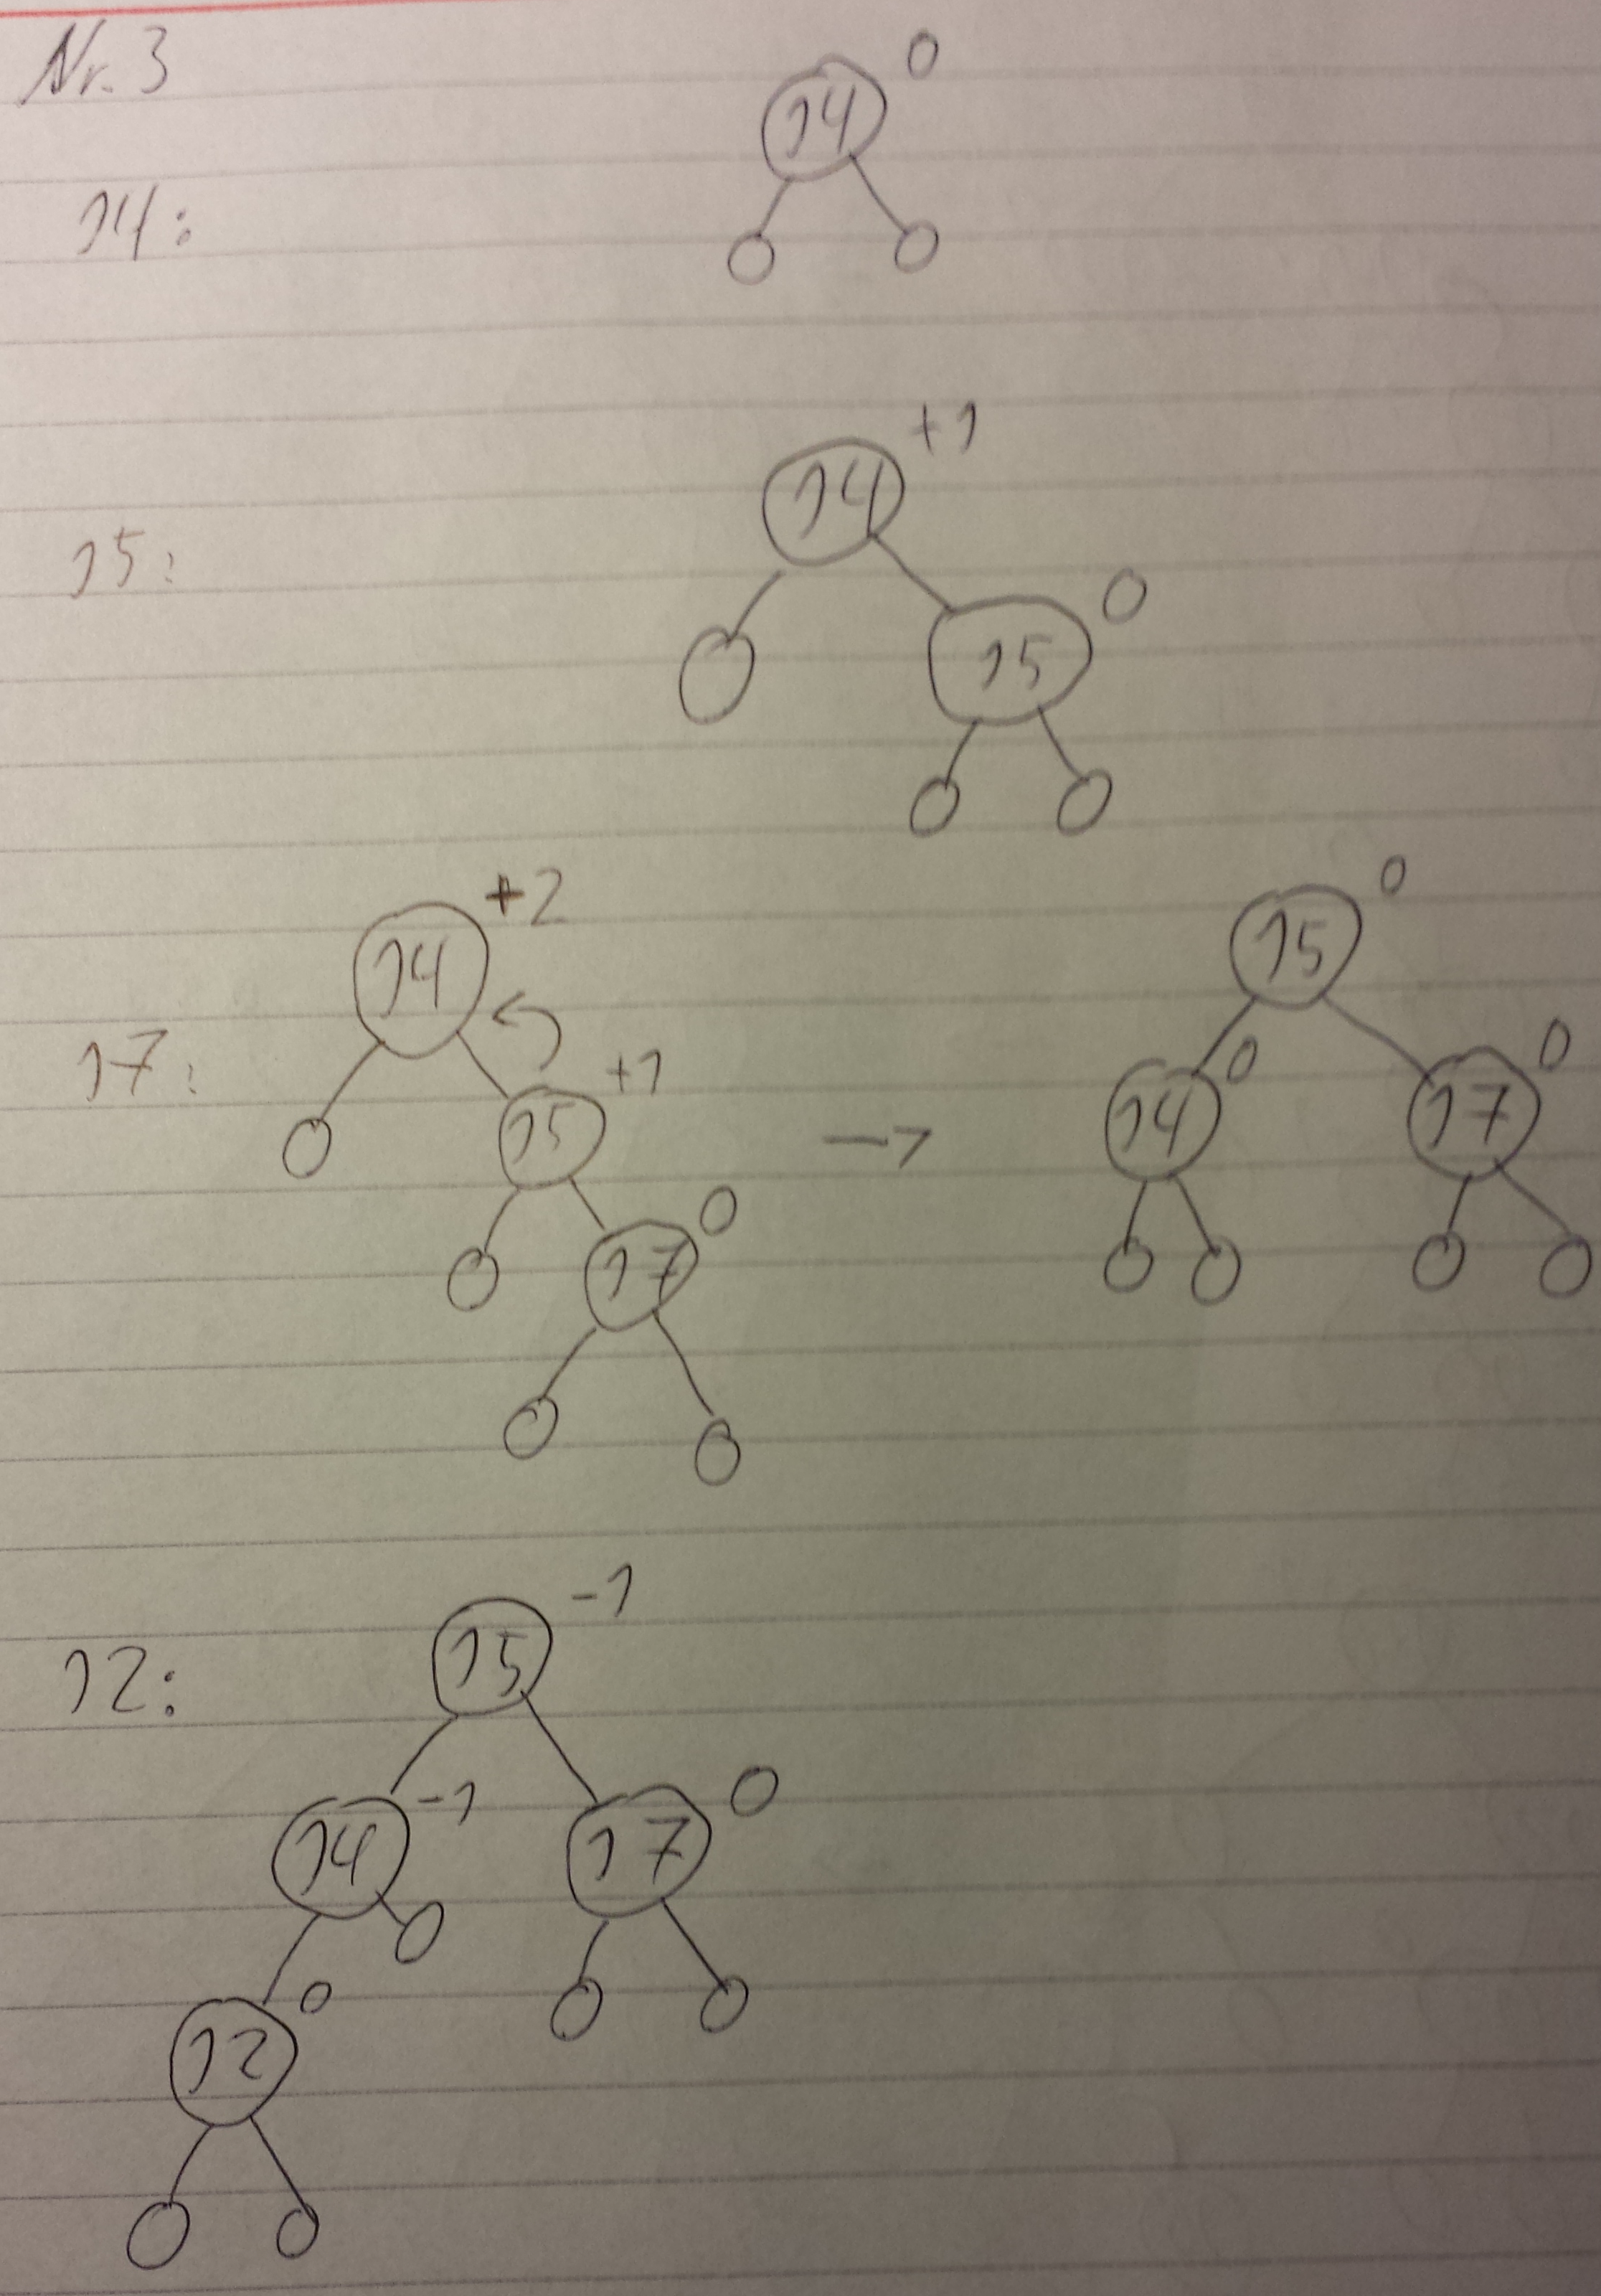 Nr. 3
0
14
14:
+1
14
15:
0
15
+2
14
17:
+1
15
0
17
->
0
15
0
14
0
17
-1
15
12:
-1
14
0
17
0
12